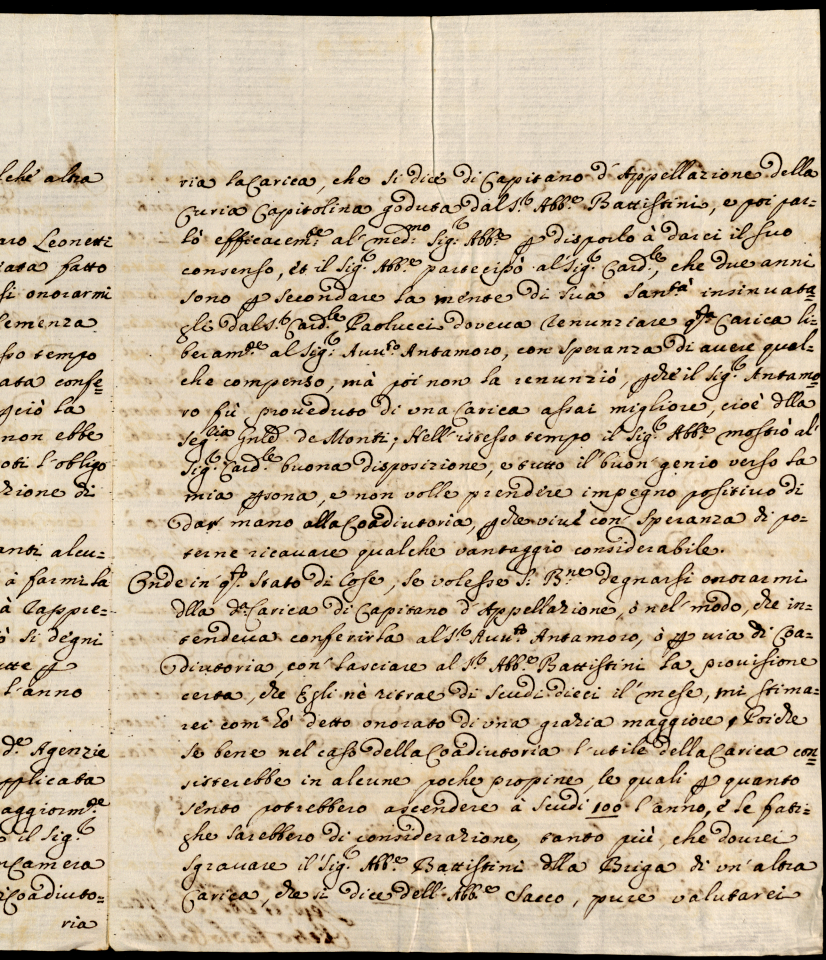 lche altra
aro Leonetti
iata fatto
si onorarmi
lemenza
sso tempo
ata confe=
geiò la
non ebbe
oti l'obligo
zione di
anti alcu=
à farmi la
à l'appre=
ò si degni
utte p
l'anno
d.e Agenzie
pplicata
aggiorm.te
il Sig.r
nCamera
Coadiuto=
ria
ria la Carica, che si dice di Capitano d'Appellazione della
Curia Capitolina goduta dal S.r Abb.e Battistini, e poi par=
lò efficacem.te al med.mo Sig.r Abb.e p disporlo à darci il suo
consenso, et il Sig.r Abb.e partecipò al Sig.r Card.le, che due anni
sono p secondare la mente di Sua San.tà insinuata=
gli dal S.r Card.le Paolucci doveva renunziare q.sta Carica li=
beram.te al Sig.r Auu.to Antamoro, con speranza di auere qual=
che compenso, mà poi non la renunziò, pche il Sig.r Antamo=
ro fù proueduto di una Carica assai migliore, cioè dlla
Seg.ria Gnle de Monti; Nell'istesso tempo il Sig.r Abb.e mostrò al
Sig.r Card.le buona disposizione, e tutto il buon genio verso la
mia psona, e non volle prendere impegno positiuo di
dar mano alla Coadiutoria, pche viue con speranza di po=
terne ricauare qualche vantaggio considerabile.
Onde in q.sto Stato di Cose, se volesse S: B.ne degnarsi onorarmi
dlla d.a Carica di Capitano d'Appellazione, ò nel modo, che in=
tendeua conferirla al S.r Auu.to Antamoro, ò p via di Coa=
diutoria, con lasciare al S.r Abb.e Battistini la prouisione
certa, che Egli nè ritrae di Scudi dieci il mese, mi stima=
rei com'hò detto onorato di una grazia maggiore, Poiche
se bene nel caso della Coadiutoria l'utile della Carica con=
sisterebbe in alcune poche propine, le quali p quanto
sento potrebbero ascendere à Scudi 100 l'anno, e le fati=
ghe sarebbero di considerazione, tanto più, che dourei
sgrauare il Sig.r Abb.e Battistini dlla Briga di un'altra
Carica, che si dice dell'Abb.e Sacco, pure valutarei